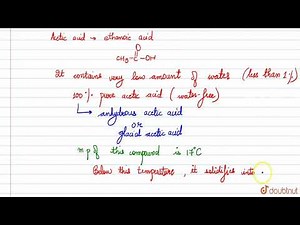 Acetic acid → ethanoic acid
O
CH3-C-OH
It contains very low amount of water (less than 1%)
100% pure acetic acid (water-free)
anhydrous acetic acid
OR
glacial acetic acid
m.p of this compound is 17°C
Below this temperature, it solidifies into
doubtnut